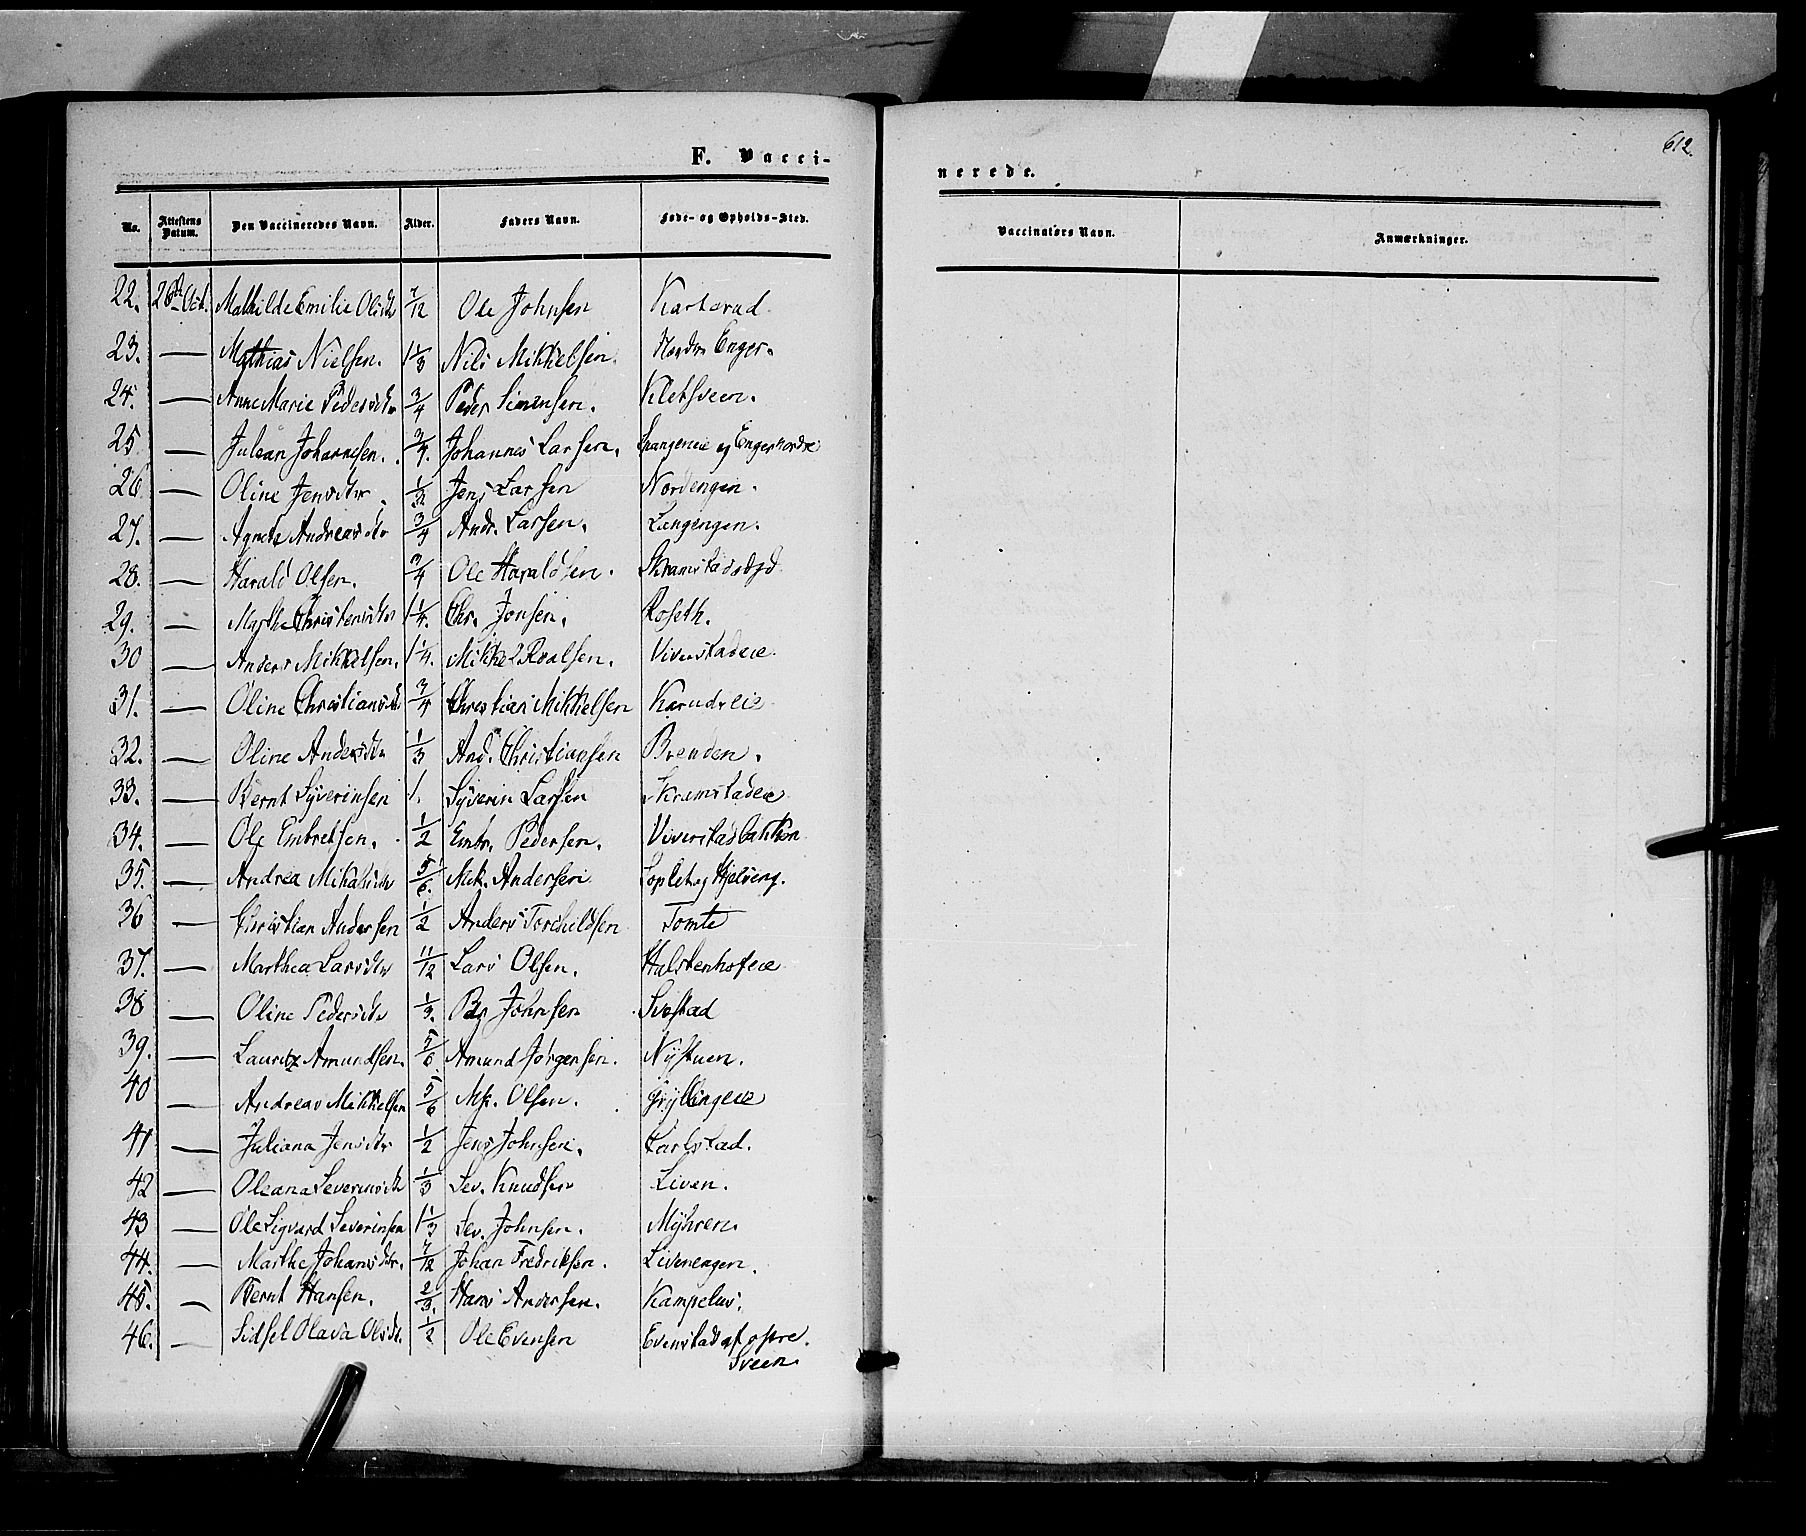 F. Vacci-
nerede.
612.
No. Attestens Datum. Den Vaccineredes Navn. Alder. Faders Navn. Føde- og Opholds-Sted.
Vaccinatørs Navn. Anmærkninger.
22. 28de Oct. Mathilde Emilie Olsdtr 7/12 Ole Johnsen
23. — Mathias Nielsen. 1 1/3 Nils Mikkelsen. Nordre Enger.
24. — Anne Marie Pedersdtr 3/4 Peder Simensen. Kletsveen.
25 — Julean Johannesen. 3/4. Johannes Larsen. og Engernordre
26 — Oline Jensdtr. 1/2 Jens Larsen Nordengen.
27. — Agnete Andreasdtr 3/4 Andr. Larsen. Langengen.
28. — Harald Olsen. 3/4 Ole Haraldsen.
29. — Marthe Christensdtr 1 1/4. Chr. Jonsen. Roseth.
30 — Anders Mikkelsen. 1 1/4. Mikkel Roalsen. Viverstadeie
31. — Oline Christiansdtr 3/4 Christian Mikkelsen
32. — Oline Andersdtr 1/3 And. Christiansen Brenden.
33. — Bernt Syverinsen 1. Syverin Larsen Skramstadeie
34. — Ole Embretsen. 1/2 Embr. Pedersen. Viverstadbakken
35. — Andrea Mikkelsdtr 5/6. Mik. Andersen
36 — Christian Andersen 1/2 Anders Torchildsen Tomte
37. — Marthea Larsdtr 11/12 Lars Olsen. Hulstenhofeie
38 — Oline Pedersdtr 1/3. Per Johnsen Svestad
39. — Lauritz Amundsen. 5/6 Amund Jörgensen. Nystuen.
40 — Andreas Mikkelsen 5/6 Mik. Olsen. Gryllingeie
41 — Juliana Jensdtr 1/2 Jens Johnsen. Karlstad.
42 — Oleana Severinsdtr 1/3 Sev. Knudsen Liven.
43 — Ole Sigvard Severinsen 1 1/3 Sev. Johnsen. Myhren.
44. — Marthe Johansdtr. 7/12 Johan Fredriksen. Livenengen.
45. — Bernt Hansen. 2/3. Hans Andersen. Kampelus.
46. — Sidsel Olava Olsdtr. 1/2 Ole Evensen Evenstad af øfre
Sveen.